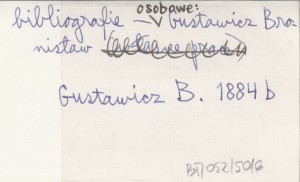 bibliografie — osobowe: Gustawicz Bro-
nisław
Gustawicz B. 1884 b
BJ/052/50/6